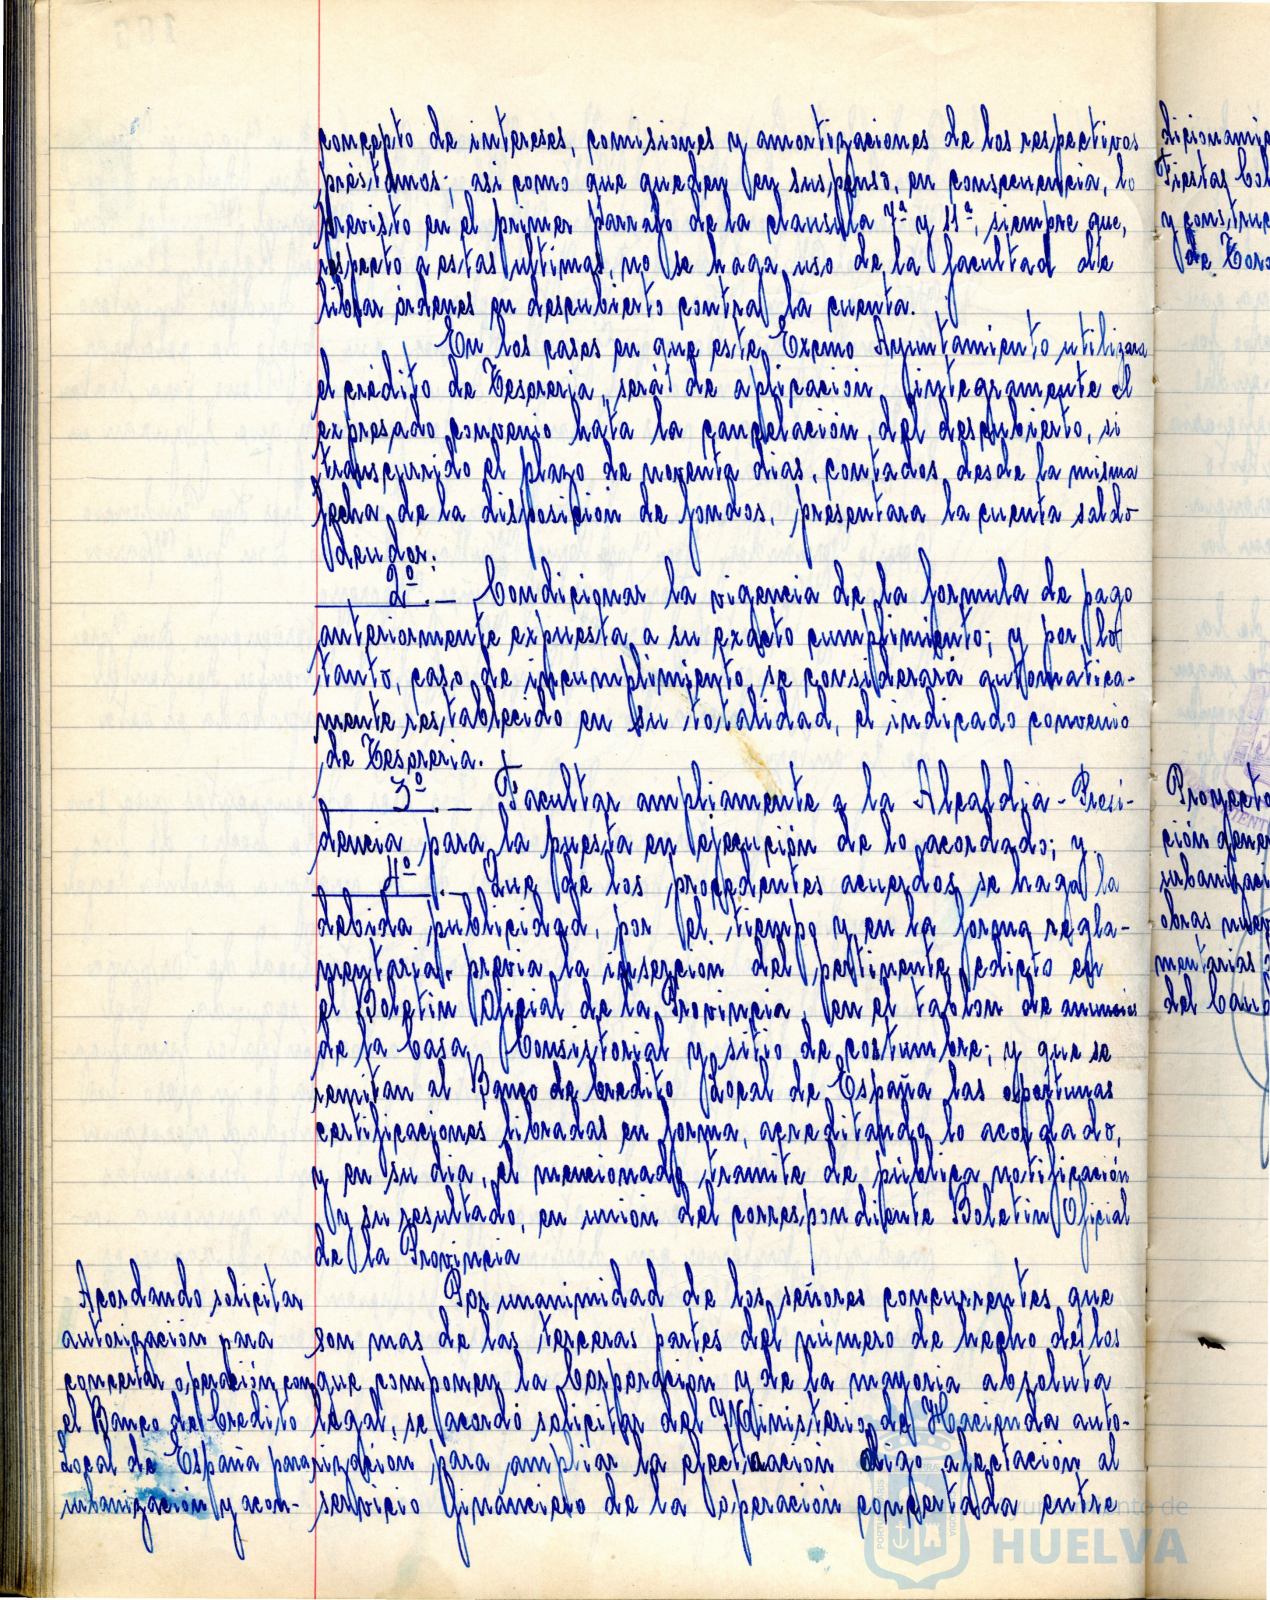 concepto de intereses, comisiones y amortizaciones de los respectivos
préstamos; asi como que queden en suspenso, en consecuencia, lo
previsto en el primer parrafo de la clausula 7ª y 11ª, siempre que,
respecto a estas ultimas, no se haga uso de la facultad de
librar órdenes en descubierto contra la cuenta.
En los casos en que este Excmo Ayuntamiento utilizara
el crédito de Tesoreria, será de aplicación integramente el
expresado convenio hata la cancelación del descubierto, si
transcurrido el plazo de noventa dias, contados desde la misma
fecha de la disposición de fondos, presentara la cuenta saldo
deudor.
2º.— Condicionar la vigencia de la formula de pago
anteriormente expuesta a su exacto cumplimiento; y por lo
tanto, caso de incumplimiento, se considerará automatica-
mente restablecido en su totalidad, el indicado convenio
de Tesoreria.
3º.— Facultar ampliamente a la Alcaldia-Presi-
dencia para la puesta en ejecución de lo acordado; y
4º.— Que de los procedentes acuerdos se haga la
debida publicidad, por el tiempo y en la forma regla-
mentaria, previa la inserción del pertinente edicto en
el Boletin Oficial de la Provincia, en el tablon de anuncios
de la Casa Consistorial y sitio de costumbre; y que se
remitan al Banco de Credito Local de España las oportunas
certificaciones libradas en forma, acreditando lo acordado,
y en su dia, el mencionado tramite de pública notificación
y su resultado, en unión del correspondiente Boletin Oficial
de la Provincia
Acordando solicitar
autorización para
concertar operación con
el Banco de Credito
Local de España para
urbanización y acon-
Por unanimidad de los señores concurrentes que
son mas de las terceras partes del número de hecho de los
que componen la Corporación y de la mayoria absoluta
legal, se acordó solicitar del Ministerio de Hacienda auto-
rización para ampliar la efectuación digo afectación al
servicio financiero de la operación concertada entre
dicionamie
Fiestas Col
y construc
de Toros
Proyecto
ción gener
urbanizaci
obras nuev
mentarias
Ayuntamiento de
HUELVA